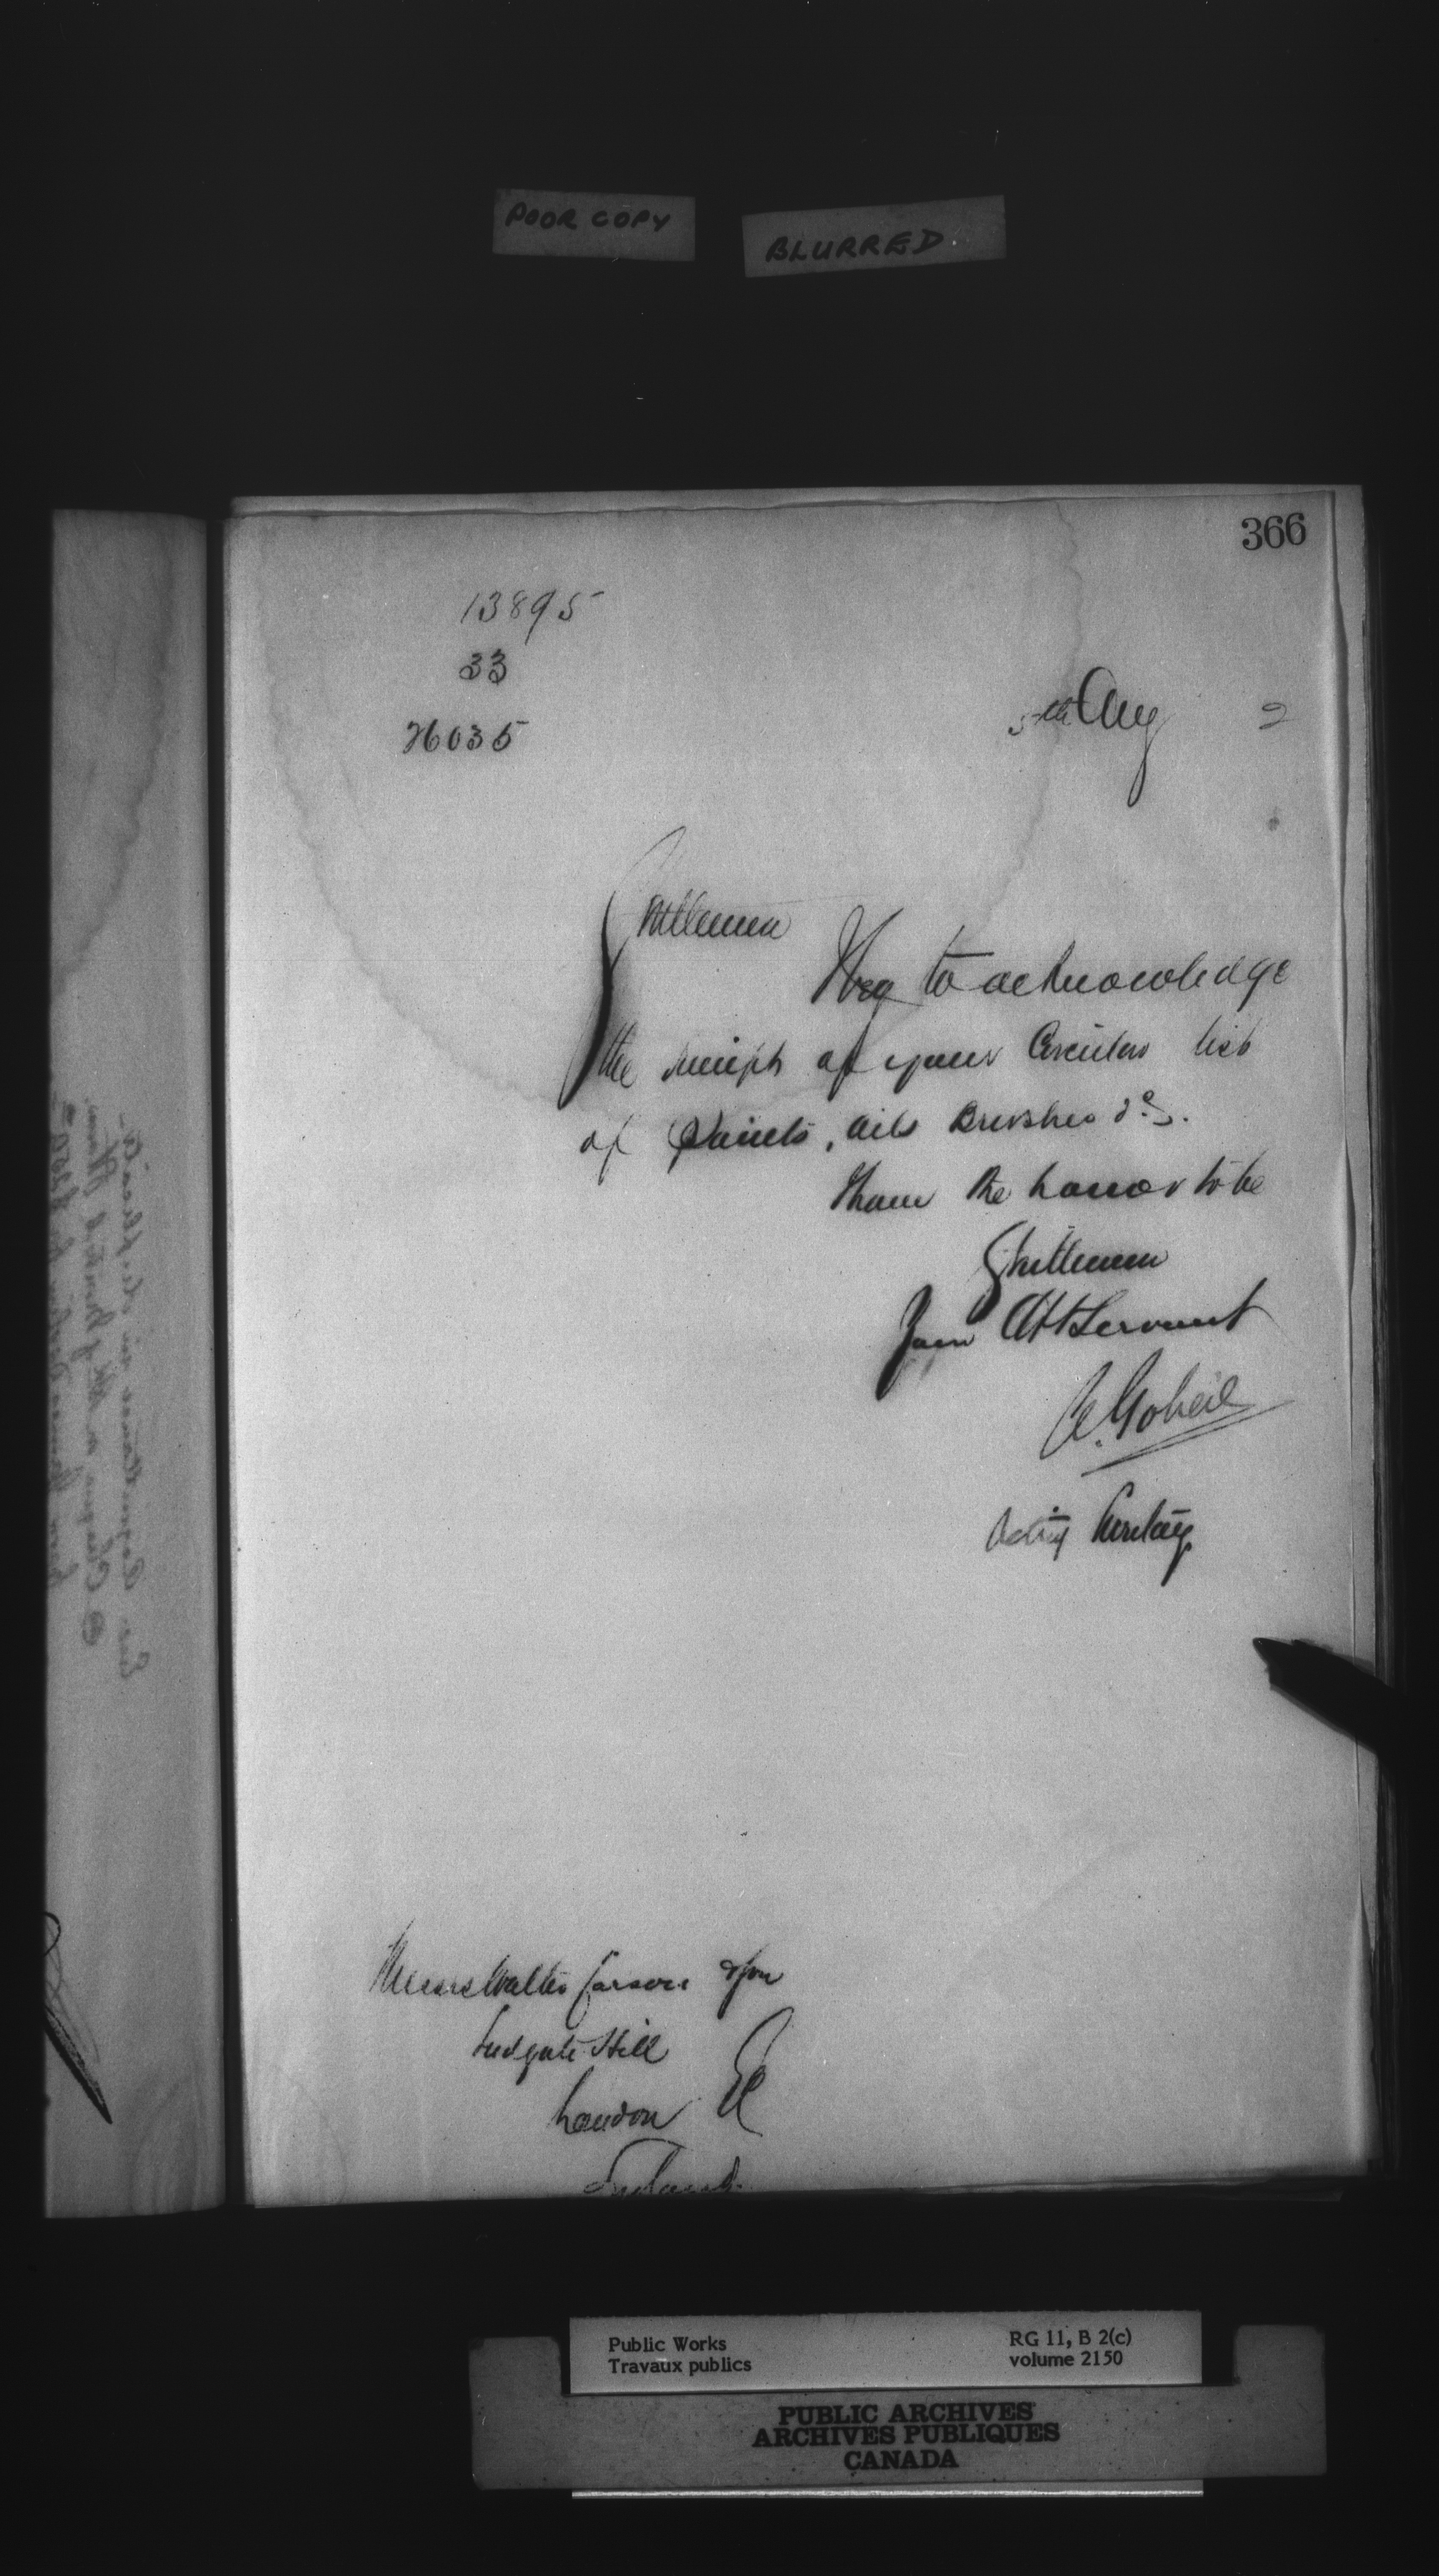 POOR COPY
BLURRED
366
13895
33
26035
5th Aug 2
Gentlemen
I beg to acknowledge
the receipt of your Circular list
of Paints, oils Brushes &c.
I have the honor to be
Gentlemen
Your Obt Servant
A. Gobeil
Acting Secretary
Messrs Walter Carson & Son
Ludgate Hill
London EC
England.
Public Works
Travaux publics
RG 11, B 2(c)
volume 2150
PUBLIC ARCHIVES
ARCHIVES PUBLIQUES
CANADA